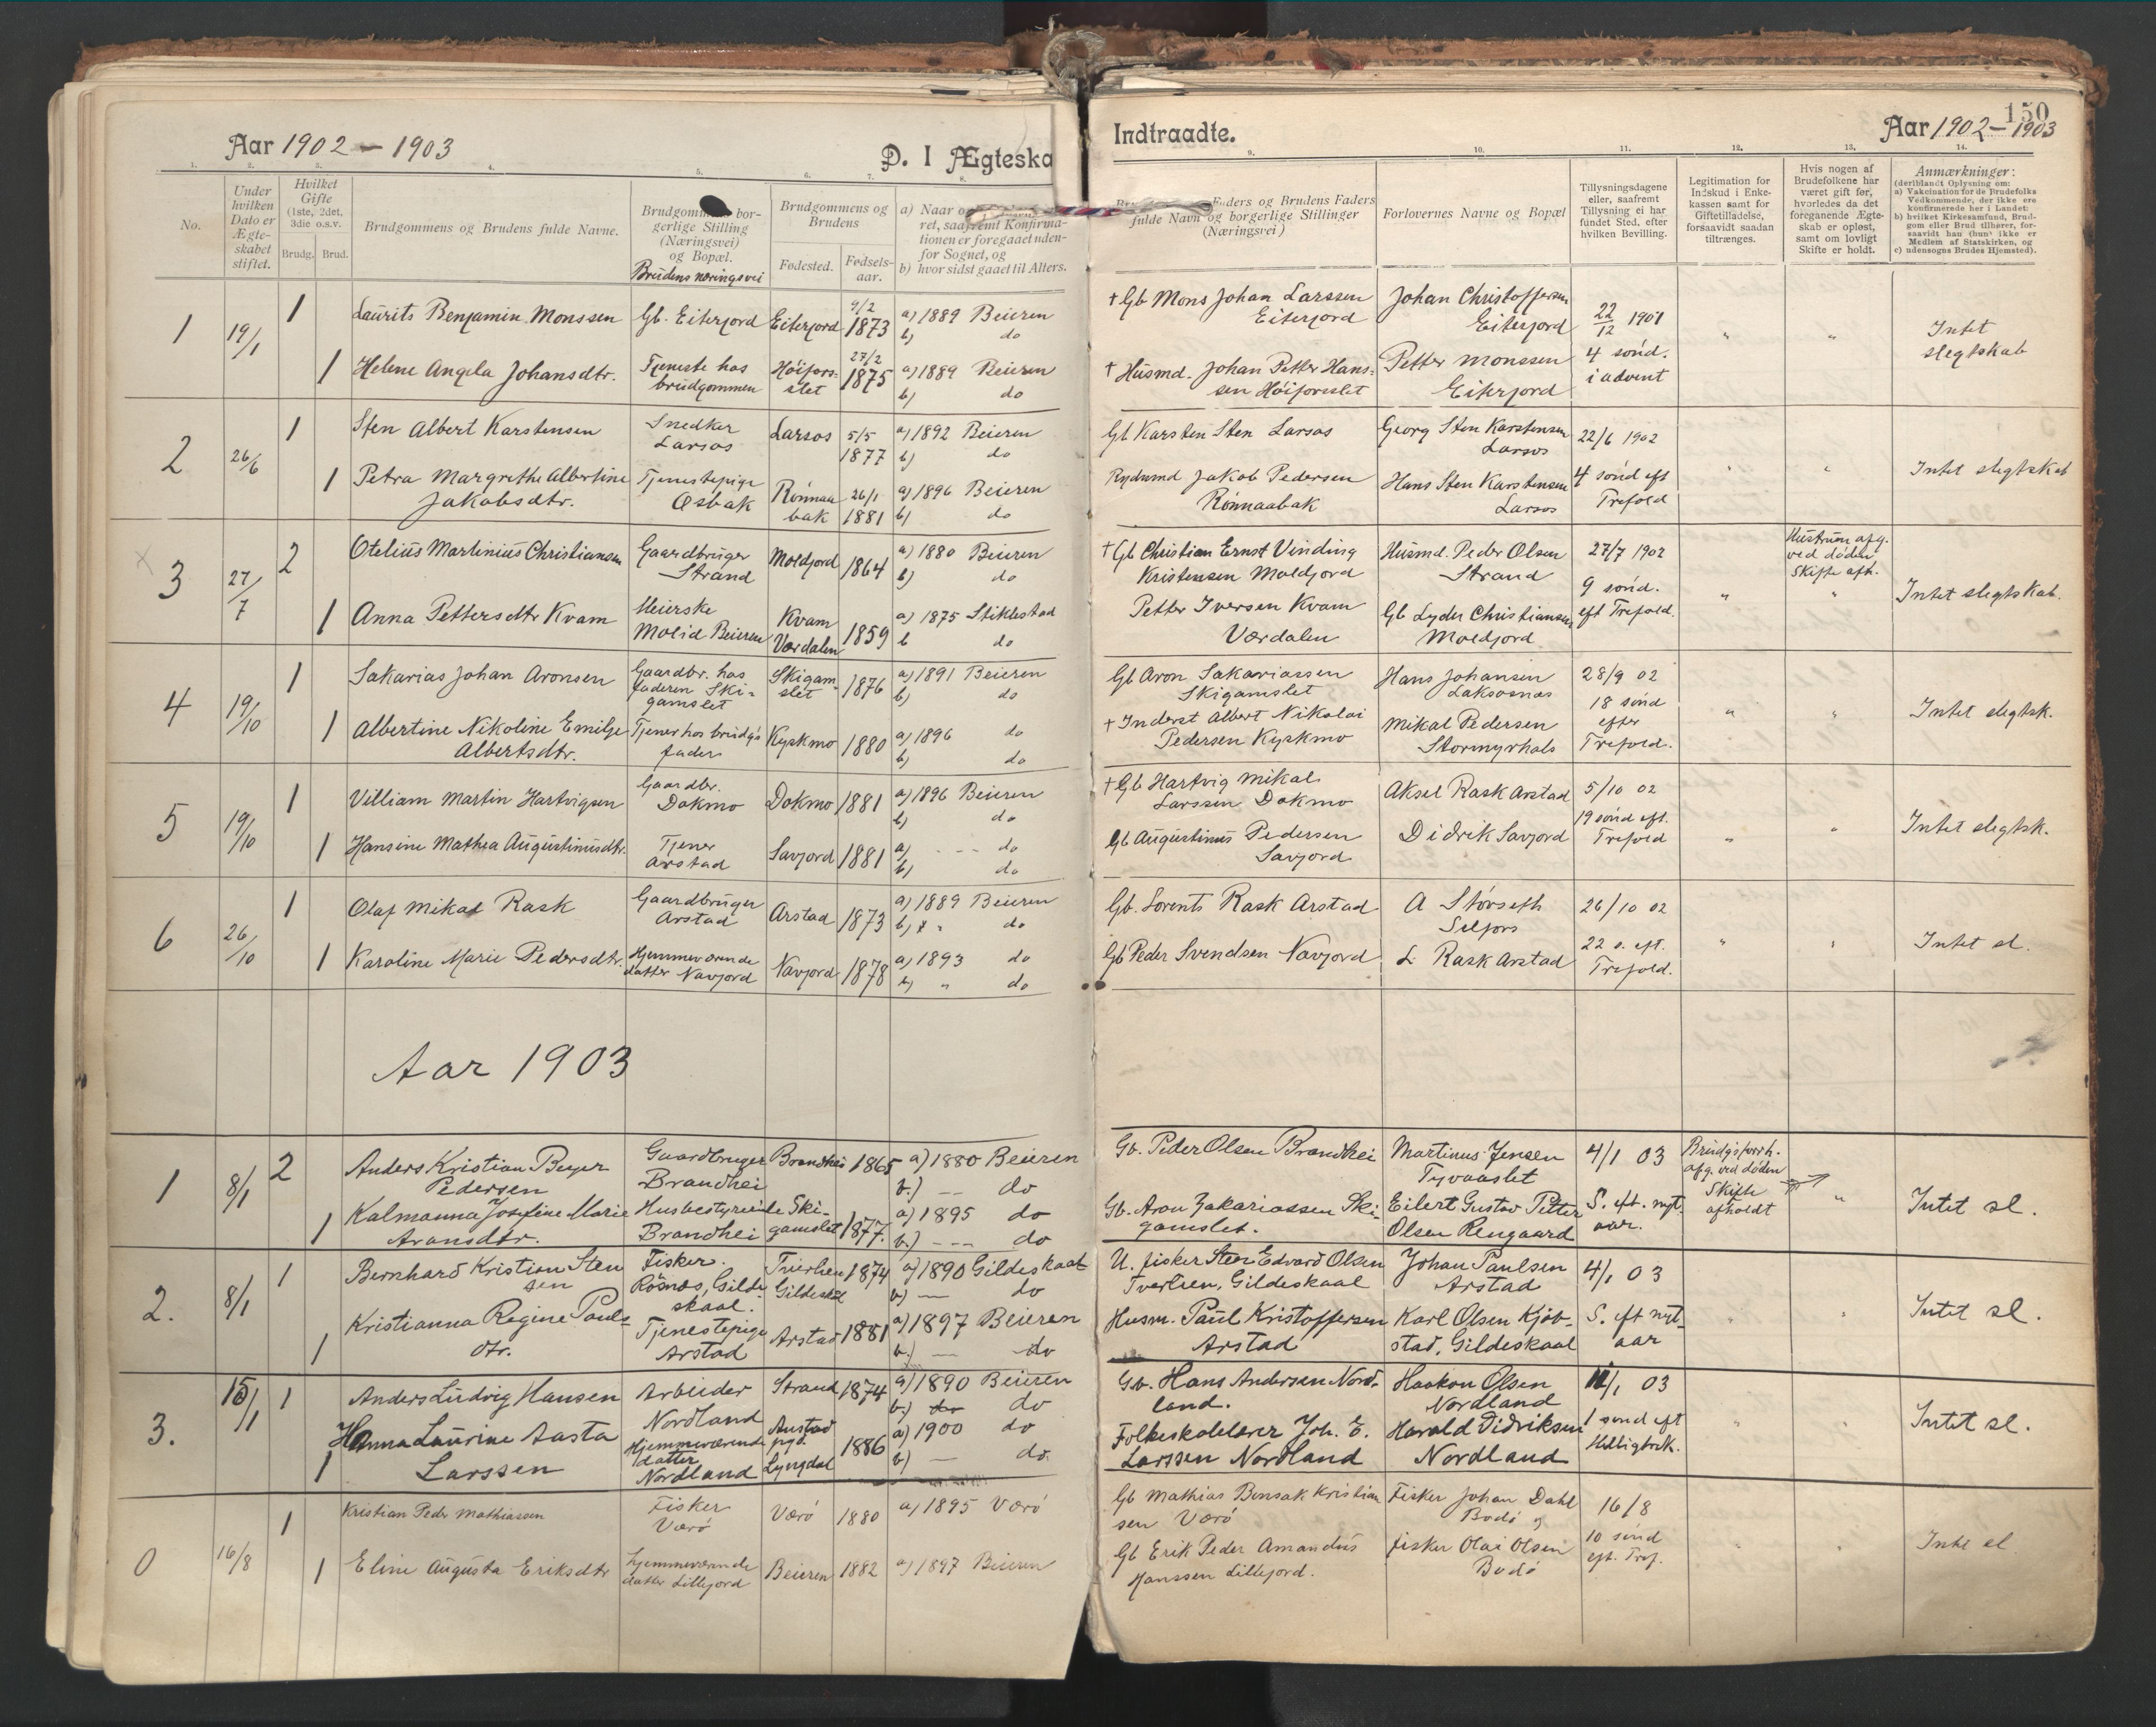 Aar 1902 – 1903
D. I Ægteska
Indtraadte.
150
Aar 1902 – 1903
1. 2. 3. 4. 5. 6. 7. 8. 9. 10. 11. 12. 13. 14.
No.
Under hvilken Dato er Ægte-skabet stiftet.
Hvilket Gifte (1ste, 2det, 3die o.s.v.
Brudg. Brud.
Brudgommens og Brudens fulde Navne.
Brudgommens bor-
gerlige Stilling
(Næringsvei)
og Bopæl.
Brudens næringsvei
Brudgommens og
Brudens
Fødested.
Fødsels-
aar.
a) Naar o
ret, saafremt Konfirma-
tionen er foregaaet uden-
for Sognet, og
b) hvor sidst gaaet til Alters.
Faders og Brudens Faders
fulde Navn og borgerlige Stillinger
(Næringsvei)
Forlovernes Navne og Bopæl
Tillysningsdagene
eller, saafremt
Tillysning ei har
fundet Sted, efter
hvilken Bevilling.
Legitimation for
Indskud i Enke-
kassen samt for
Giftetilladelse,
forsaavidt saadan
tiltrænges.
Hvis nogen af
Brudefolkene har
været gift før,
hvorledes da det
foregaaende Ægte-
skab er opløst,
samt om lovligt
Skifte er holdt.
Anmærkninger:
(deriblandt Oplysning om:
a) Vakcination for de Brudefolks
Vedkommende, der ikke ere
konfirmerede her i Landet:
b) hvilket Kirkesamfund, Brud-
gom eller Brud tilhører, for-
saavidt han (hun) ikke er
Medlem af Statskirken, og
c) udensogns Brudes Hjemsted).
1 19/1 1 Laurits Benjamin Monssen Gb. Eiterjord Eiterjord 9/2 1873 a) 1889 Beieren b) do
† Gb Mons Johan Larssen Eiterjord Johan Christoffersen Eiterjord 22/12 1901 " " Intet slegtskab
1 Helene Angela Johansdtr. Tjeneste hos brudgommen Høifors-slet 27/2 1875 a) 1889 Beieren b) do
† Husmd. Johan Petter Hans-sen Høiforsslet Petter Monssen Eiterjord 4 sønd. i advent
2 26/6 1 Sten Albert Karstensen Snedker Larsos Larsos 5/5 1877 a) 1892 Beieren b) do
Gb Karsten Sten Larsos Georg Sten Karstensen Larsos 22/6 1902 " " Intet slegtskab
1 Petra Margrethe Albertine Jakobsdtr. Tjenestepige Osbak Rønnaabak 26/1 1881 a) 1896 Beieren b) do
Jakob Pedersen Rønnaabak Hans Sten Karstensen Larsos 4 sønd eft Trefold
3 27/7 2 Otelius Martinius Christiansen Gaardbruger Strand Moldjord 1864 a) 1880 Beieren b) do
† Gb Christian Ernst Vinding Kristensen Moldjord Husmd. Peder Olsen Strand 27/7 1902 " Hustruen afg. ved døden Skifte afh. " Intet slegtskab.
1 Anna Pettersdtr Kvam Meierske Molid Beieren Kvam Værdalen 1859 a) 1875 Stiklestad b do
Petter Iversen Kvam Værdalen Gb Lyder Christiansen Moldjord 9 sønd. eft Trefold.
4 19/10 1 Sakarias Johan Aronsen Gaardbr. hos faderen Ski-gamslet Skigam-slet 1876 a) 1891 Beieren b) do
Gb Aron Sakariassen Skigamslet Hans Johansen Laksosnæs 28/9 02 " " Intet slegtsk.
1 Albertine Nikoline Emilje Albertsdtr. Tjener hos brudg's fader Kyskmo 1880 a) 1896 do b) do
† Inderst Albert Nikolai Pedersen Kyskmo Mikal Pedersen Stormyrhals 18 sønd efter Trefold.
5 19/10 1 Villiam Martin Hartvigsen Gaardbr. Dokmo Dokmo 1881 a) 1896 Beieren b) do
† Gb Hartvig Mikal Larssen Dokmo Aksel Rask Arstad 5/10 02 " " Intet slegtsk.
1 Hansine Mathea Augustinusdtr. Tjener Arstad Savjord 1881 a) - - - do b) do
Gb Augustinus Pedersen Savjord Didrik Savjord 19 sønd eft. Trefold
6 26/10 1 Olaf Mikal Rask Gaardbruger Arstad Arstad 1873 a) 1889 Beieren b) do
Gb. Lorents Rask Arstad A Størseth Selfors 26/10 02 " " Intet sl.
1 Karoline Marie Pedersdtr. Hjemmeværende datter Navjord Navjord 1878 a) 1893 do b) " do
Gb Peder Svendsen Navjord L Rask Arstad 22 s. eft. Trefold.
Aar 1903
1 8/1 2 Anders Kristian Beyer Pedersen Gaardbruger Brandhei Brandhei 1865 a) 1880 Beieren b.) — do
Gb. Peder Olsen Brandhei Martinus Jensen Tyvaaslet 4/1 03 Brudgs forrh. afg. ved døden Skifte afholdt " Intet sl.
1 Kalmanna Josefine Marie Aronsdtr. Husbestyrerinde Brandhei Ski-gamslet 1877. a) 1895 do b.) --- do
Gb. Aron Zakariassen Ski-gamslet. Eilert Gustav Petter Olsen Rengaard S. eft. nyt-aar.
2. 8/1 1 Bernhard Kristian Stensen Fisker. Røsnæs, Gilde-skaal. Tverlien Gildeskl 1874 a) 1890 Gildeskaal b) — do
U. fisker Sten Edvard Olsen Tverlien, Gildeskaal Johan Paulsen Arstad 4/1 03 Intet sl.
1 Kristianna Regine Pauls-dtr. Tjenestepige Arstad Arstad 1881 a) 1897 Beieren b.) — do
Husm. Paul Kristoffersen Arstad Karl Olsen Kjøb-stad, Gildeskaal S. eft nyt-aar
3. 15/1 1 Anders Ludvig Hansen Arbeider Nordland Strand 1874 a) 1890 Beieren b.) do do
Gb. Hans Andersen Nord-land. Haakon Olsen Nordland 11/1 03 Intet sl.
1 Hanna Laurine Aasta Larssen Hjemmeværende datter Nordland Austad pgd. Lyngdal 1886 a) 1900 do b) — do.
Folkeskolelærer Joh. E. Larssen Nordland Harald Didriksen Nordland 1 sønd eft Helligtrek.
0 16/8 1 Kristian Peder Mathiassen Fisker Værö Værö 1880 a) 1895 Værö
Gb Mathias Bensak Kristiansen Værö Fisker Johan Dahl Bodö 16/8 Intet sl
1 Eline Augusta Eriksdtr hjemmeværende datter Lillejord Beieren 1882 a) 1897 Beieren
Gb Erik Peder Amandus Hanssen Lillejord. fisker Olai Olsen Bodö 10 sønd eft. Tref.